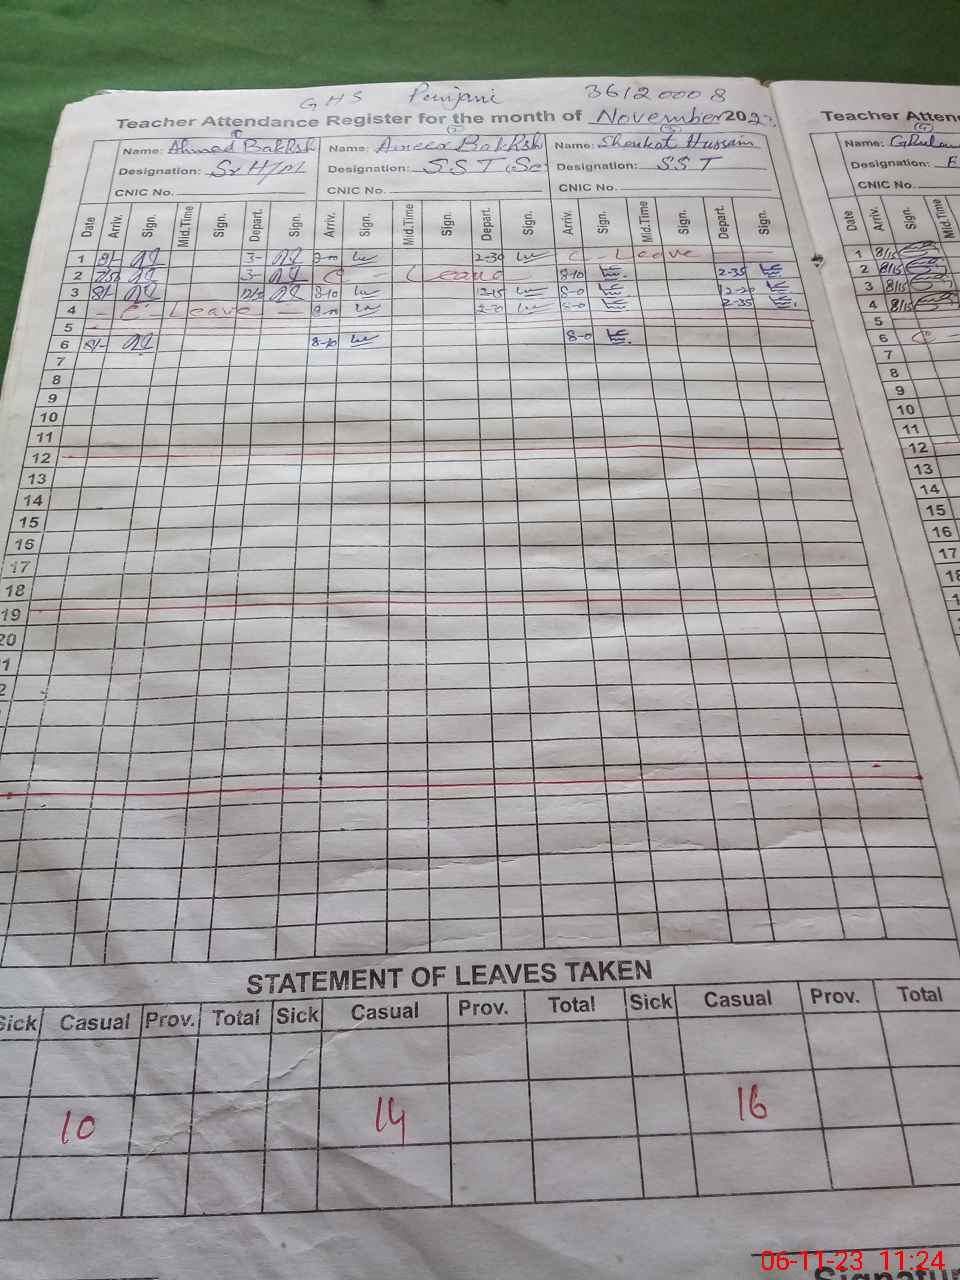 GHS Punjani 36120008
Teacher Attendance Register for the month of November 202
Name: Ahmad Bakhsh Name: Ameer Bakhsh Name: Shoukat Hussain
Designation: Designation: SST (Sc Designation: SST
CNIC No. CNIC No. CNIC No.
Date Arriv. Sign. Mid.Time Sign. Depart. Sign. Arriv. Sign. Mid.Time Sign. Depart. Sign. Arriv. Sign. Mid.Time Sign. Depart. Sign.
1 8/- 3- 2-30 C-Leave
2 3- C - Leave 8-10 2-35
3 8/- 8-10 12-15 8-0 12-20
4 - C - Leave - 8-0 2-35
5
6 8/- 8-10 8-0
7
8
9
10
11
12
13
14
15
16
17
18
19
20
1
2
STATEMENT OF LEAVES TAKEN
Sick Casual Prov. Total Sick Casual Prov. Total Sick Casual Prov. Total
10 14 16
Teacher Atten
Name: Ghulam
Designation: E
CNIC No.
Date Arriv. Sign. Mid.Time
1 8/15
2 8/15
3 8/15
4 8/15
5
6 C -
7
8
9
10
11
12
13
14
15
16
17
18
06-11-23 11:24